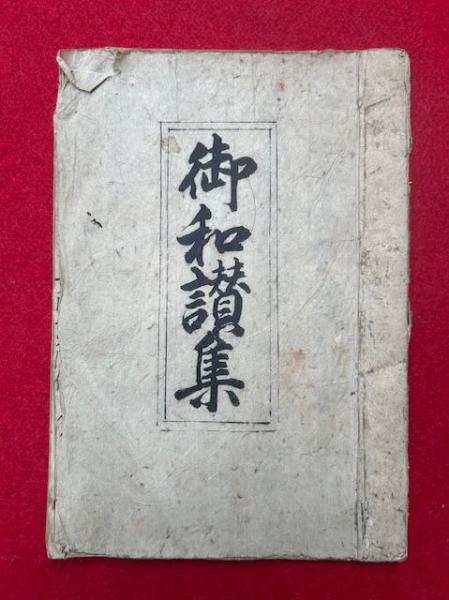 御和讃集